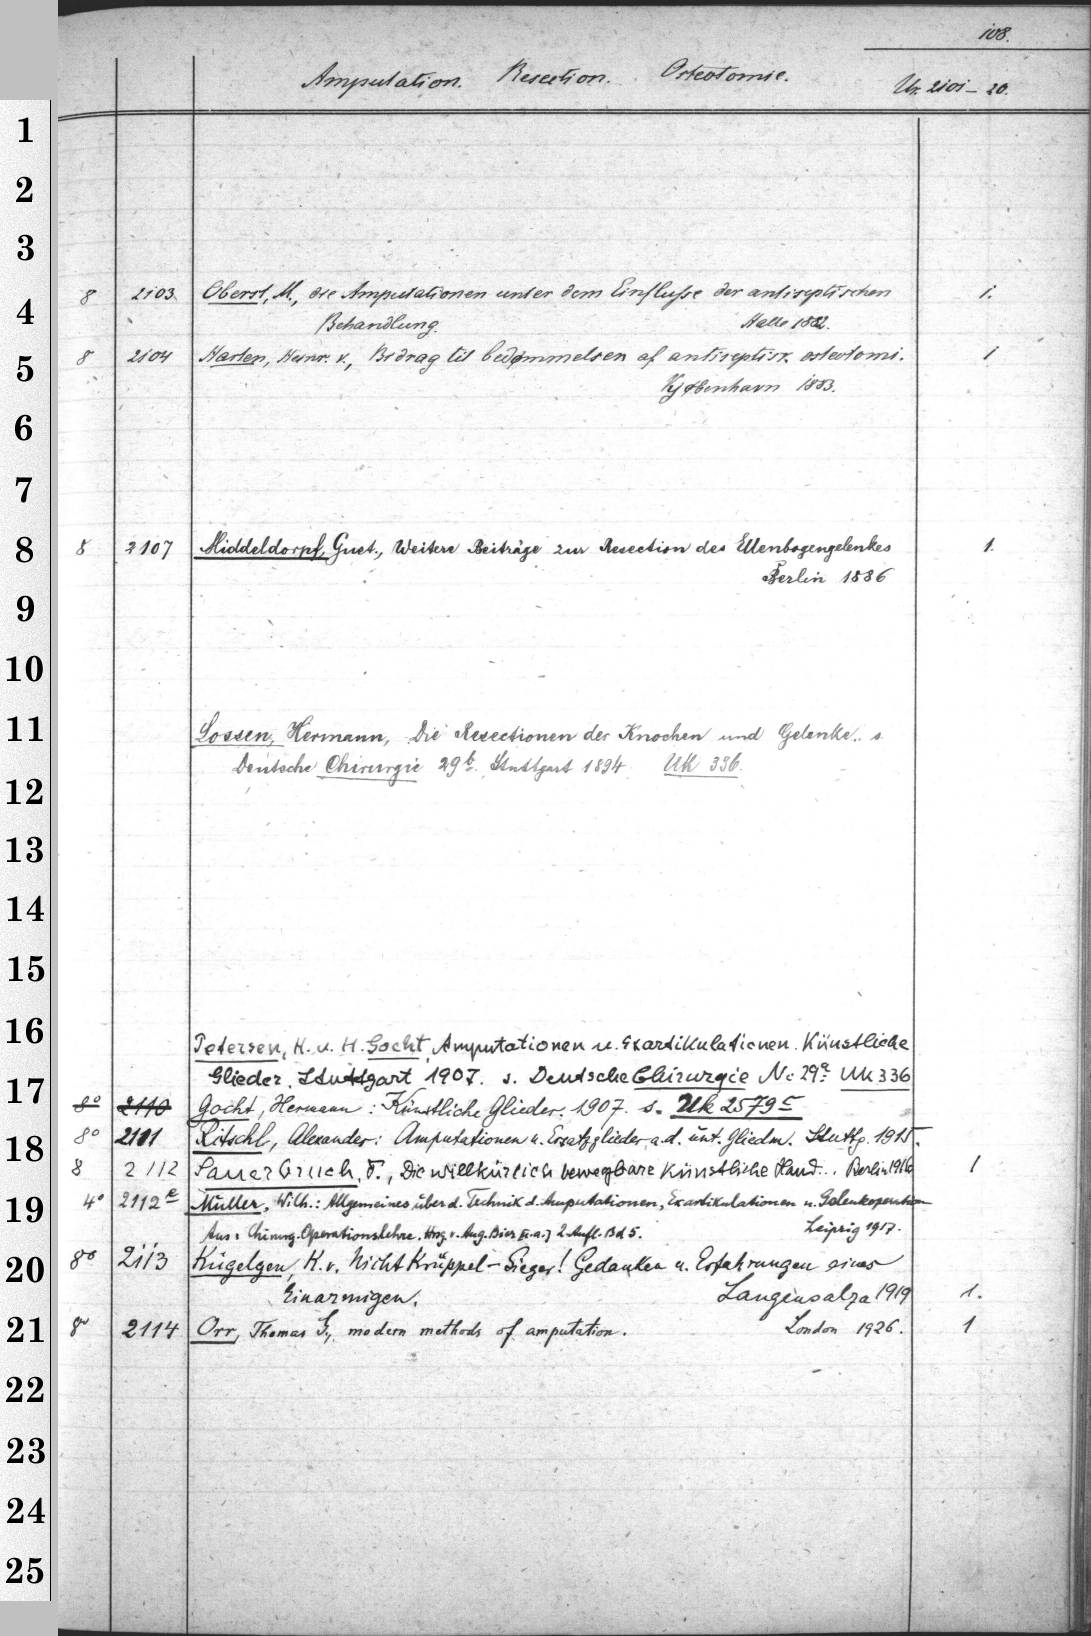 108.
Amputation. Resection. Osteotomie.
Un. 2101 - 20.
1
2
3
8 2103 Oberst, M., die Amputationen unter dem Einfluße der antiseptischen 1.
4
Behandlung. Halle 1882.
8 2104 Harten, Heinr. v., Bidrag til bedømmelsen af antiseptisk osteotomi. 1
5
Kjøbenhavn 1883.
6
7
8
8 2107 Middeldorpf, Gust., Weitere Beiträge zur Resection des Ellenbogengelenkes 1.
Berlin 1886
9
10
11
Lossen, Hermann, Die Resectionen der Knochen und Gelenke. s.
Deutsche Chirurgie 29b. Stuttgart 1894 Uk 336.
12
13
14
15
16
Petersen, H. u. H. Gocht, Amputationen u. Exartikulationen. Künstliche
Glieder. Stuttgart 1907. s. Deutsche Chirurgie No 29a Uk 336
17
8° 2110 Gocht, Hermann: Künstliche Glieder. 1907. s. Uk 2579c
8° 2111 Ritschl, Alexander: Amputationen u. Ersatzglieder a. d. unt. Gliedm. Stuttg. 1915.
18
8 2112 Sauerbruch, F., Die willkürlich bewegbare künstliche Hand... Berlin 1916 1
4° 2112a Müller, Wilh.: Allgemeines über d. Technik d. Amputationen, Exartikulationen u. Gelenkoperation
19
Aus: Chirurg. Operationslehre. Hrsg v. Aug. Bier [u. a.] 2. Aufl. Bd 5. Leipzig 1917.
8° 2113 Kügelgen, K. v. Nicht Krüppel - Sieger! Gedanken u. Erfahrungen eines
20
Einarmigen. Langensalza 1919 1.
8° 2114 Orr, Thomas G., modern methods of amputation. London 1926. 1
21
22
23
24
25